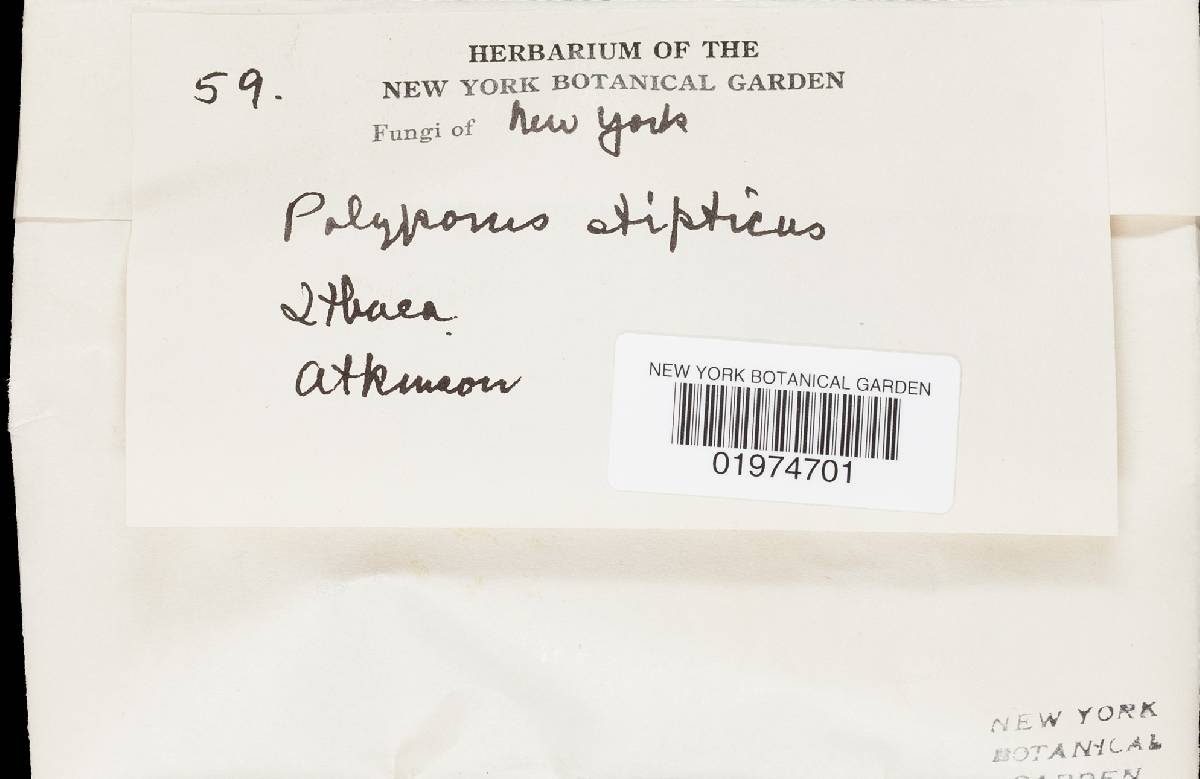 59.
HERBARIUM OF THE
NEW YORK BOTANICAL GARDEN
Fungi of New York
Polyporus stipticus
Ithaca.
Atkinson
NEW YORK BOTANICAL GARDEN
01974701
NEW YORK
BOTANICAL
GARDEN